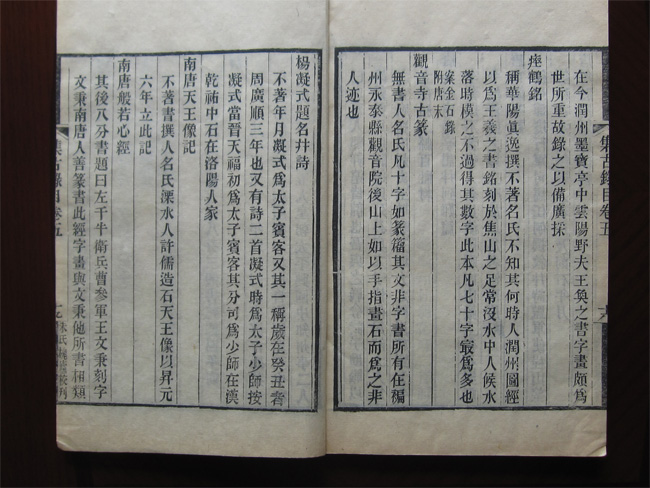 集古錄目卷五
在今潤州墨寶亭中雲陽野夫王奐之書字畫頗爲
世所重故錄之以備廣採
瘞鶴銘
稱華陽眞逸撰不著名氏不知其何時人潤州圖經
以爲王羲之書銘刻於焦山之足常沒水中人候水
落時模之不過得其數字此本凡七十字最爲多也
案金石錄
附唐末
觀音寺古篆
無書人名氏凡十字如篆籀其文非字書所有在福
州永泰縣觀音院後山上如以手指畫石而爲之非
人迹也
楊凝式題名幷詩
不著年月凝式爲太子賓客又其一稱歲在癸丑者
周廣順三年也又有詩二首凝式時爲太子少師按
凝式當晉天福初爲太子賓客其分司爲少師在漢
乾祐中石在洛陽人家
南唐天王像記
不著書撰人名氏溧水人許儒造石天王像以昇元
六年立此記
南唐般若心經
其後八分書題曰左千牛衛兵曹參軍王文秉刻字
文秉南唐人善篆書此經字畫與文秉他所書相類
集古錄目卷五